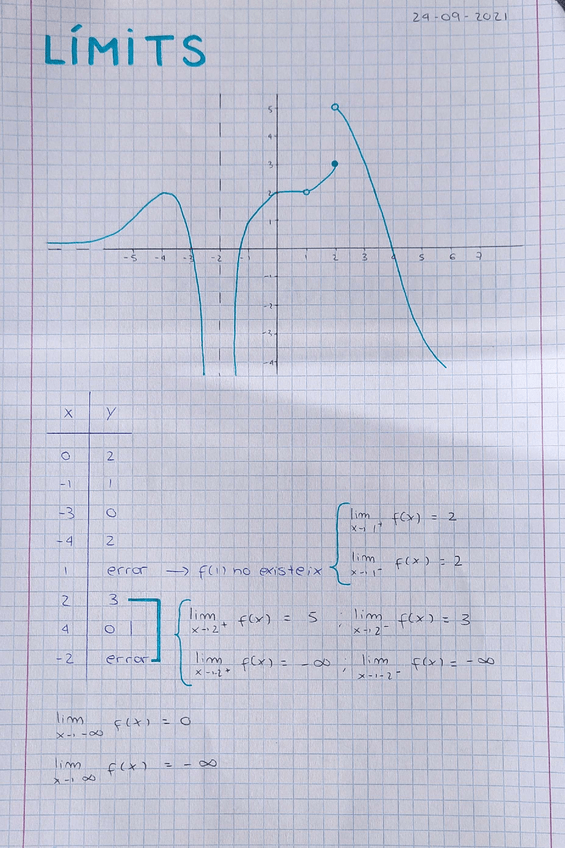 24-09-2021
LÍMITS
5
4
3
2
1
-5 -4 -3 -1 1 2 3 4 5 6 7
-1
-2
-3
-4
x y
0 2
-1 1
-3 0
-4 2
1 error → f(1) no existeix
lim x→1⁺ f(x) = 2
lim x→1⁻ f(x) = 2
2 3
4 0
-2 error
lim x→2⁺ f(x) = 5 ; lim x→2⁻ f(x) = 3
lim x→-2⁺ f(x) = -∞ ; lim x→-2⁻ f(x) = -∞
lim x→-∞ f(x) = 0
lim x→∞ f(x) = -∞